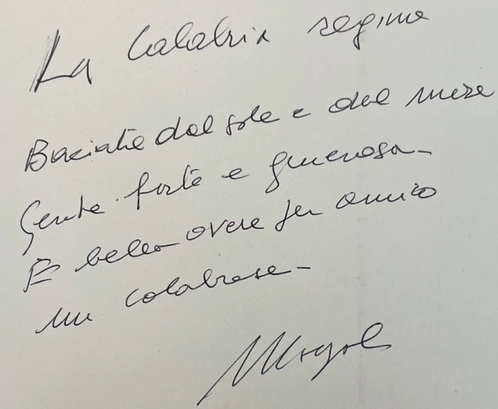 La Calabria regina
Baciata dal sole e dal mare
Gente forte e generosa
È bello avere per amico
un calabrese
Mogol